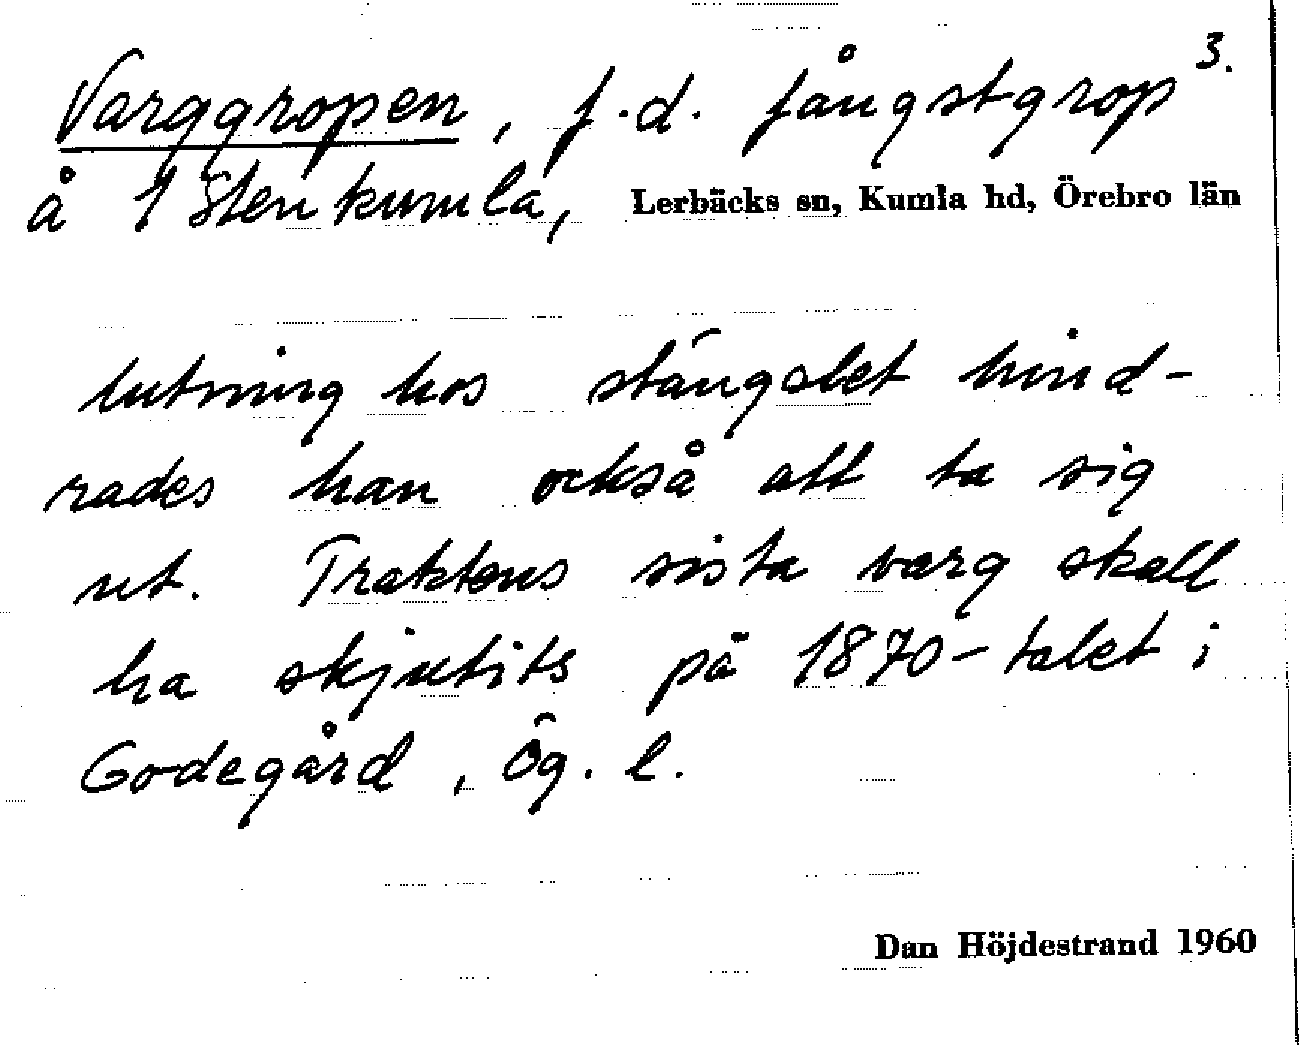 3.
Varggropen, f.d. fångstgrop
å 1 Stenkumla, Lerbäcks sn, Kumla hd, Örebro län
lutning hos stängslet hind-
rades han också att ta sig
ut. Traktens sista varg skall
ha skjutits på 1870-talet i
Godegård, Ög. l.
Dan Höjdestrand 1960